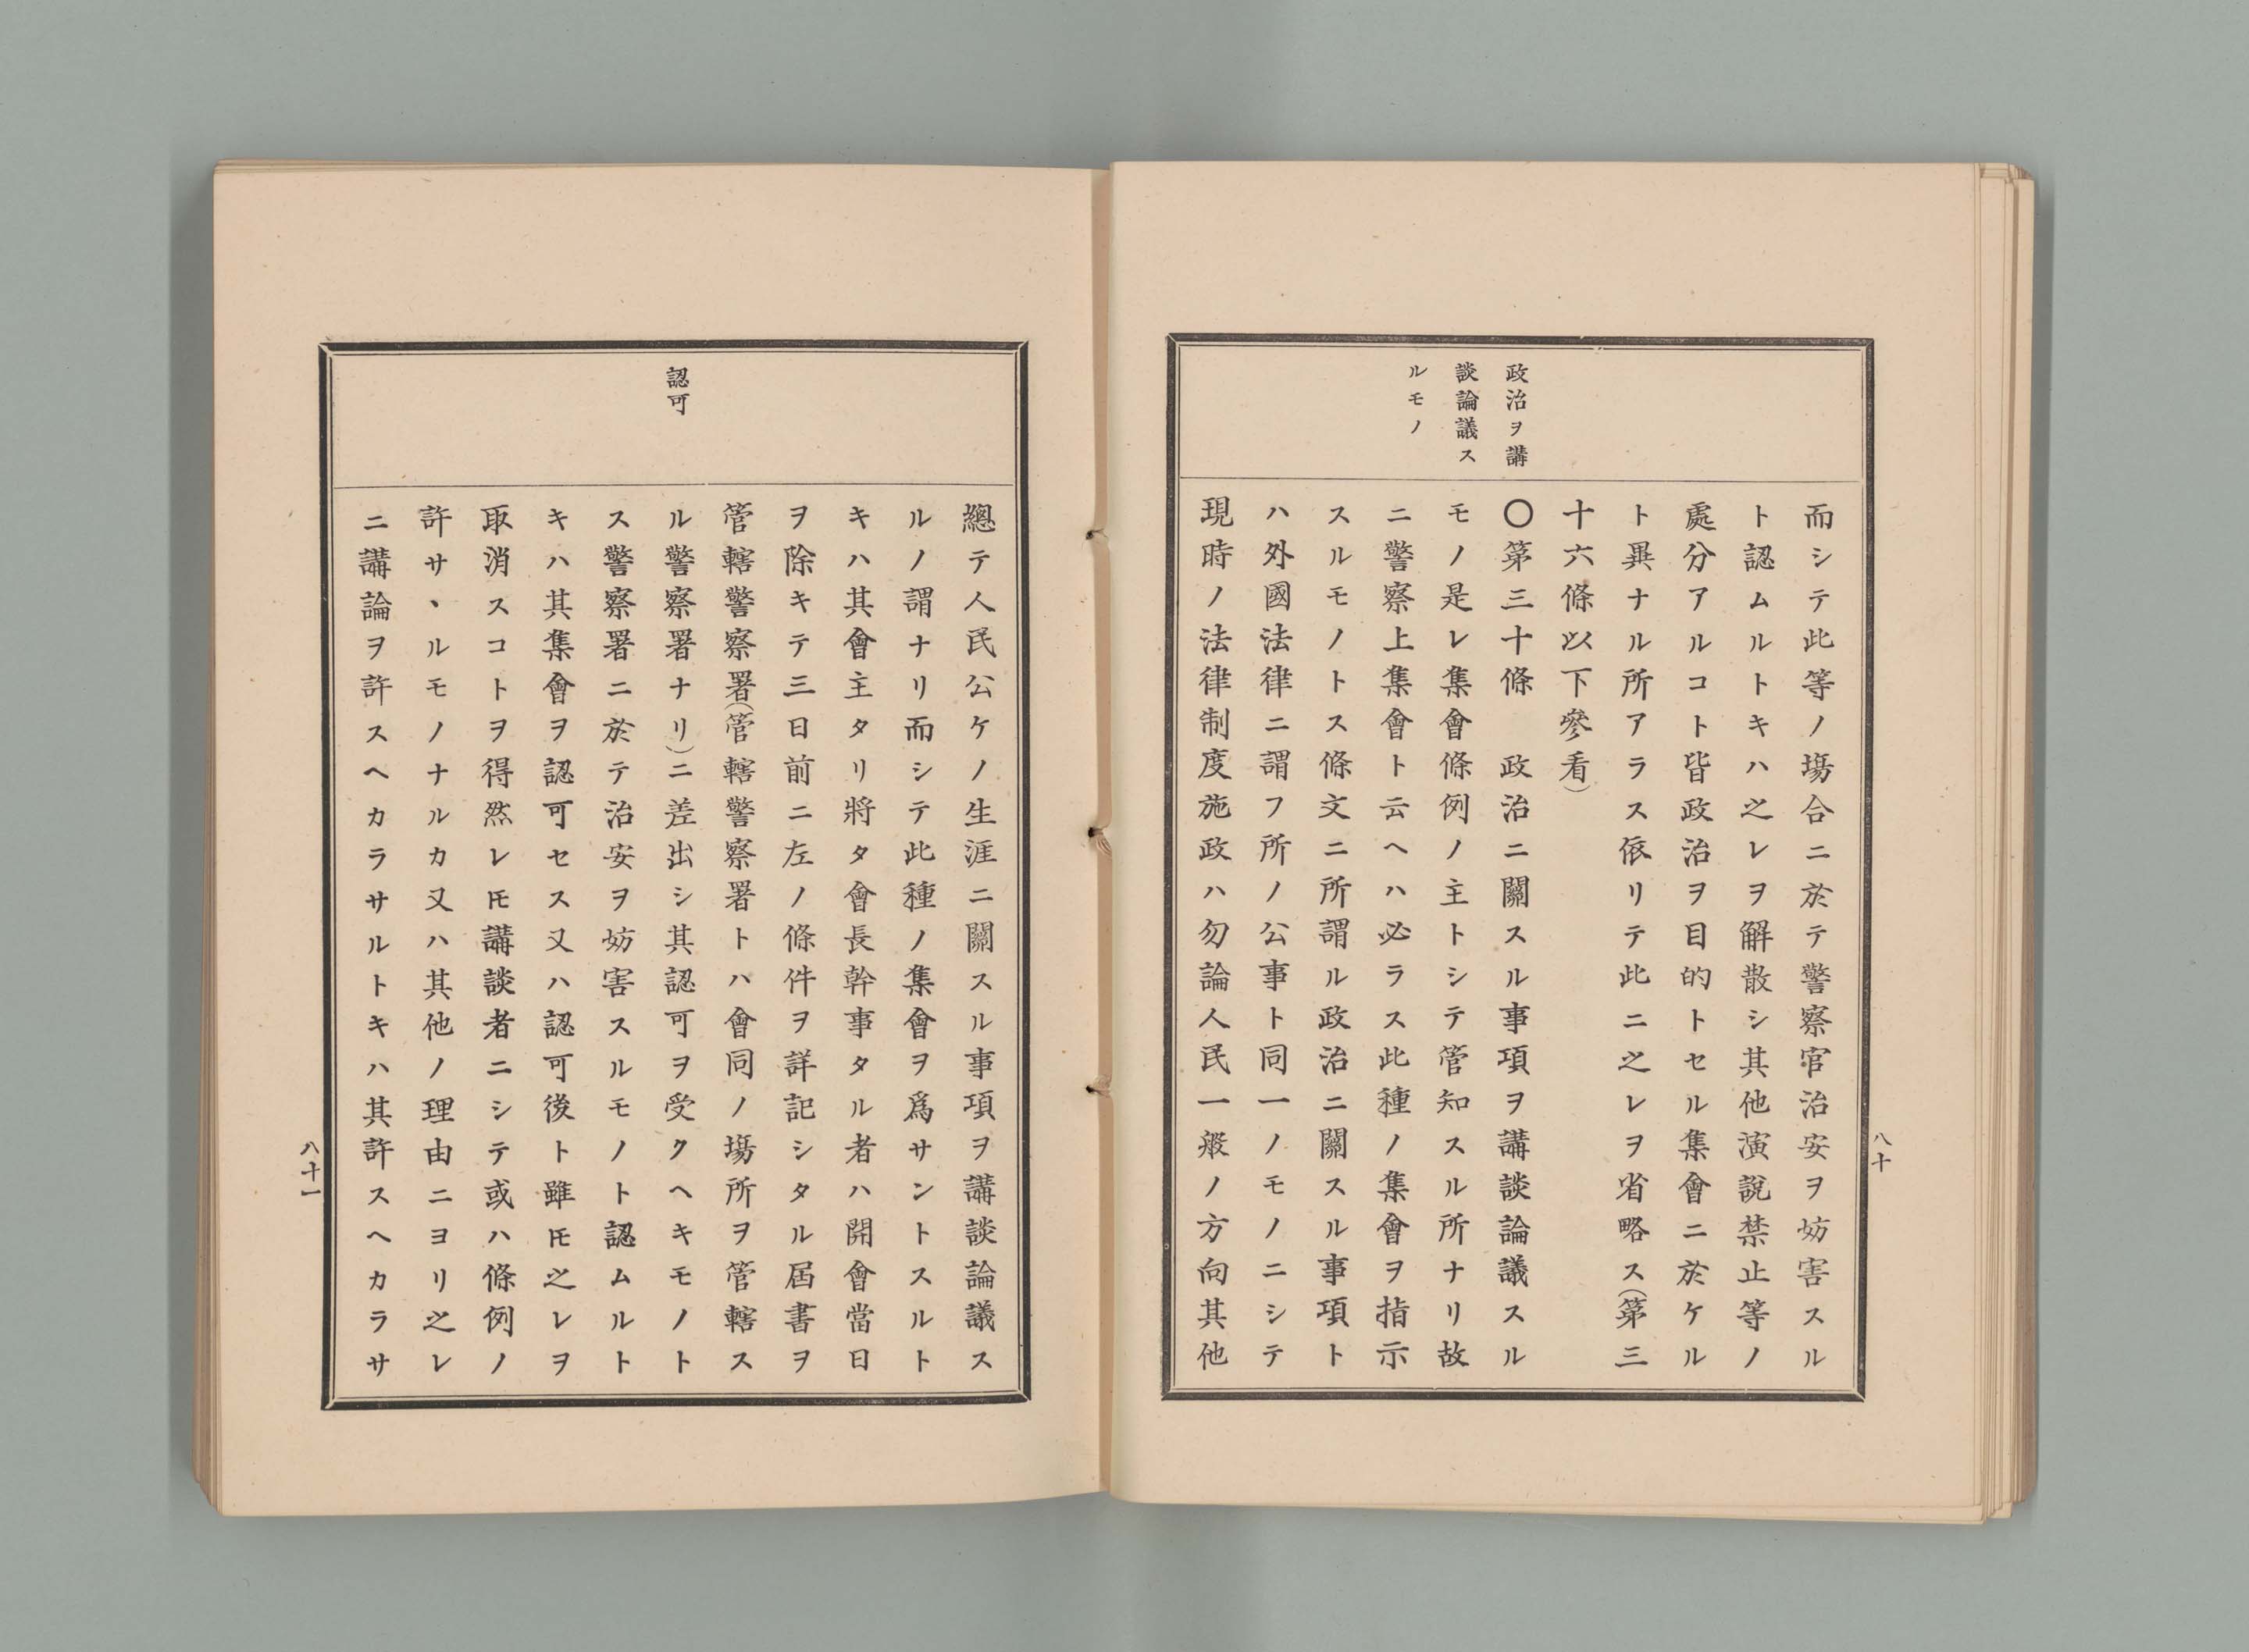 政治ヲ講
談論議ス
ルモノ
而シテ此等ノ塲合ニ於テ警察官治安ヲ妨害スル
ト認ムルトキハ之レヲ解散シ其他演說禁止等ノ
處分アルコト皆政治ヲ目的トセル集會ニ於ケル
ト異ナル所アラス依リテ此ニ之レヲ省略ス(第三
十六條以下參看)
〇第三十條　政治ニ關スル事項ヲ講談論議スル
モノ是レ集會條例ノ主トシテ管知スル所ナリ故
ニ警察上集會ト云ヘハ必ラス此種ノ集會ヲ指示
スルモノトス條文ニ所謂ル政治ニ關スル事項ト
ハ外國法律ニ謂フ所ノ公事ト同一ノモノニシテ
現時ノ法律制度施政ハ勿論人民一般ノ方向其他
八十
認可
總テ人民公ケノ生涯ニ關スル事項ヲ講談論議ス
ルノ謂ナリ而シテ此種ノ集會ヲ爲サントスルト
キハ其會主タリ將タ會長幹事タル者ハ開會當日
ヲ除キテ三日前ニ左ノ條件ヲ詳記シタル屆書ヲ
管轄警察署(管轄警察署トハ會同ノ塲所ヲ管轄ス
ル警察署ナリ)ニ差出シ其認可ヲ受クヘキモノト
ス警察署ニ於テ治安ヲ妨害スルモノト認ムルト
キハ其集會ヲ認可セス又ハ認可後ト雖𪜈之レヲ
取消スコトヲ得然レ𪜈講談者ニシテ或ハ條例ノ
許サヽルモノナルカ又ハ其他ノ理由ニヨリ之レ
ニ講論ヲ許スヘカラサルトキハ其許スヘカラサ
八十一